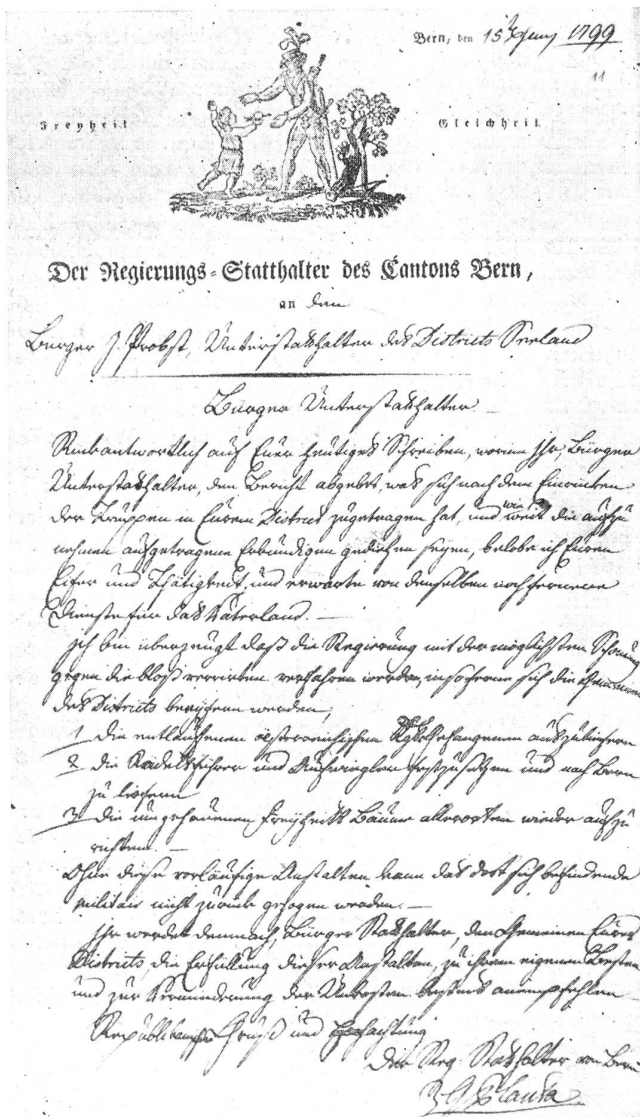 Bern, den 15t Juny 1799
11
Freyheit Gleichheit
Der Regierungs-Statthalter des Cantons Bern,
an den
Burger J. Probst, Unterstatthalter des Districts Seeland
Burger Unterstatthalter
Rückantwortlich auf Euer heutiges Schreiben, worinn Ihr, Burger
Unterstatthalter, den Bericht abgebet, was sich nach dem Einrücken
der Truppen in Eurem District zugetragen hat, und wie weit die aufzu
nehmen aufgetragene Erkundigen gediehen seyen, belobe ich Euren
Eifer und Thätigkeit, und erwarte von denselben noch fernere
Dienste für das Vaterland. —
Ich bin überzeugt daß die Regierung mit der möglichsten Schonung
gegen die bloß verirrten verfahren werde, insofern sich die Gemeinen
des Districts beeifern werden,
1 die entlaufenen oesterreichischen Kriegsgefangenen auszuliefern
2 die Rädelsführer und Aufwiegler festzusetzen und nach Bern
zu liefern
3 die umgehauenen Freyheits Bäume allerorten wieder aufzu
richten. —
Ohne diese vorläufige Anstalten kann das dort sich befindende
Militair nicht zurück gezogen werden. —
Ihr werdet demnach, Burger Statthalter, den Gemeinen Eures
Districts, die Erfüllung dieser Anstalten, zu ihrem eigenen Besten
und zur Verminderung der Unkosten bestens anempfehlen
Republikanischer Gruß und Hochachtung
Der Reg. Statthalter von Bern